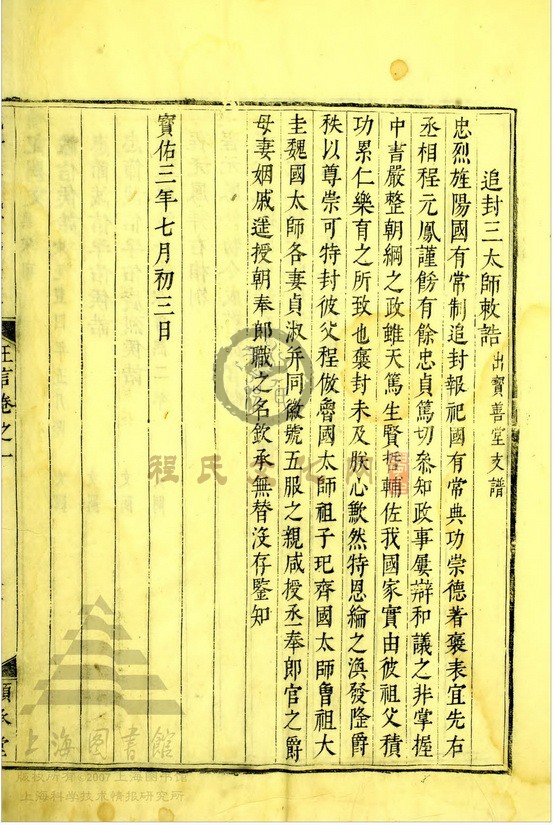 追封三太師敕誥 出寶善堂支譜
忠烈旌陽國有常制追封報祀國有常典功崇德著褒表宜先右
丞相程元鳳謹飭有餘忠貞篤切叅知政事屢辯和議之非掌握
中書嚴整朝綱之政雖天篤生賢哲輔佐我國家實由彼祖父積
功累仁樂育之所致也褒封未及朕心歉然特恩綸之渙發隆爵
秩以尊崇可特封彼父程倣魯國太師祖子玘齊國太師曾祖大
圭魏國太師各妻貞淑并同徽號五服之親咸授丞奉郎官之爵
母妻姻戚遥授朝奉郎職之名欽承無替沒存鑒知
寶佑三年七月初三日
卷之一
程氏文化网
上海圖書館
版权所有 2007 上海图书馆
上海科学技术情报研究所